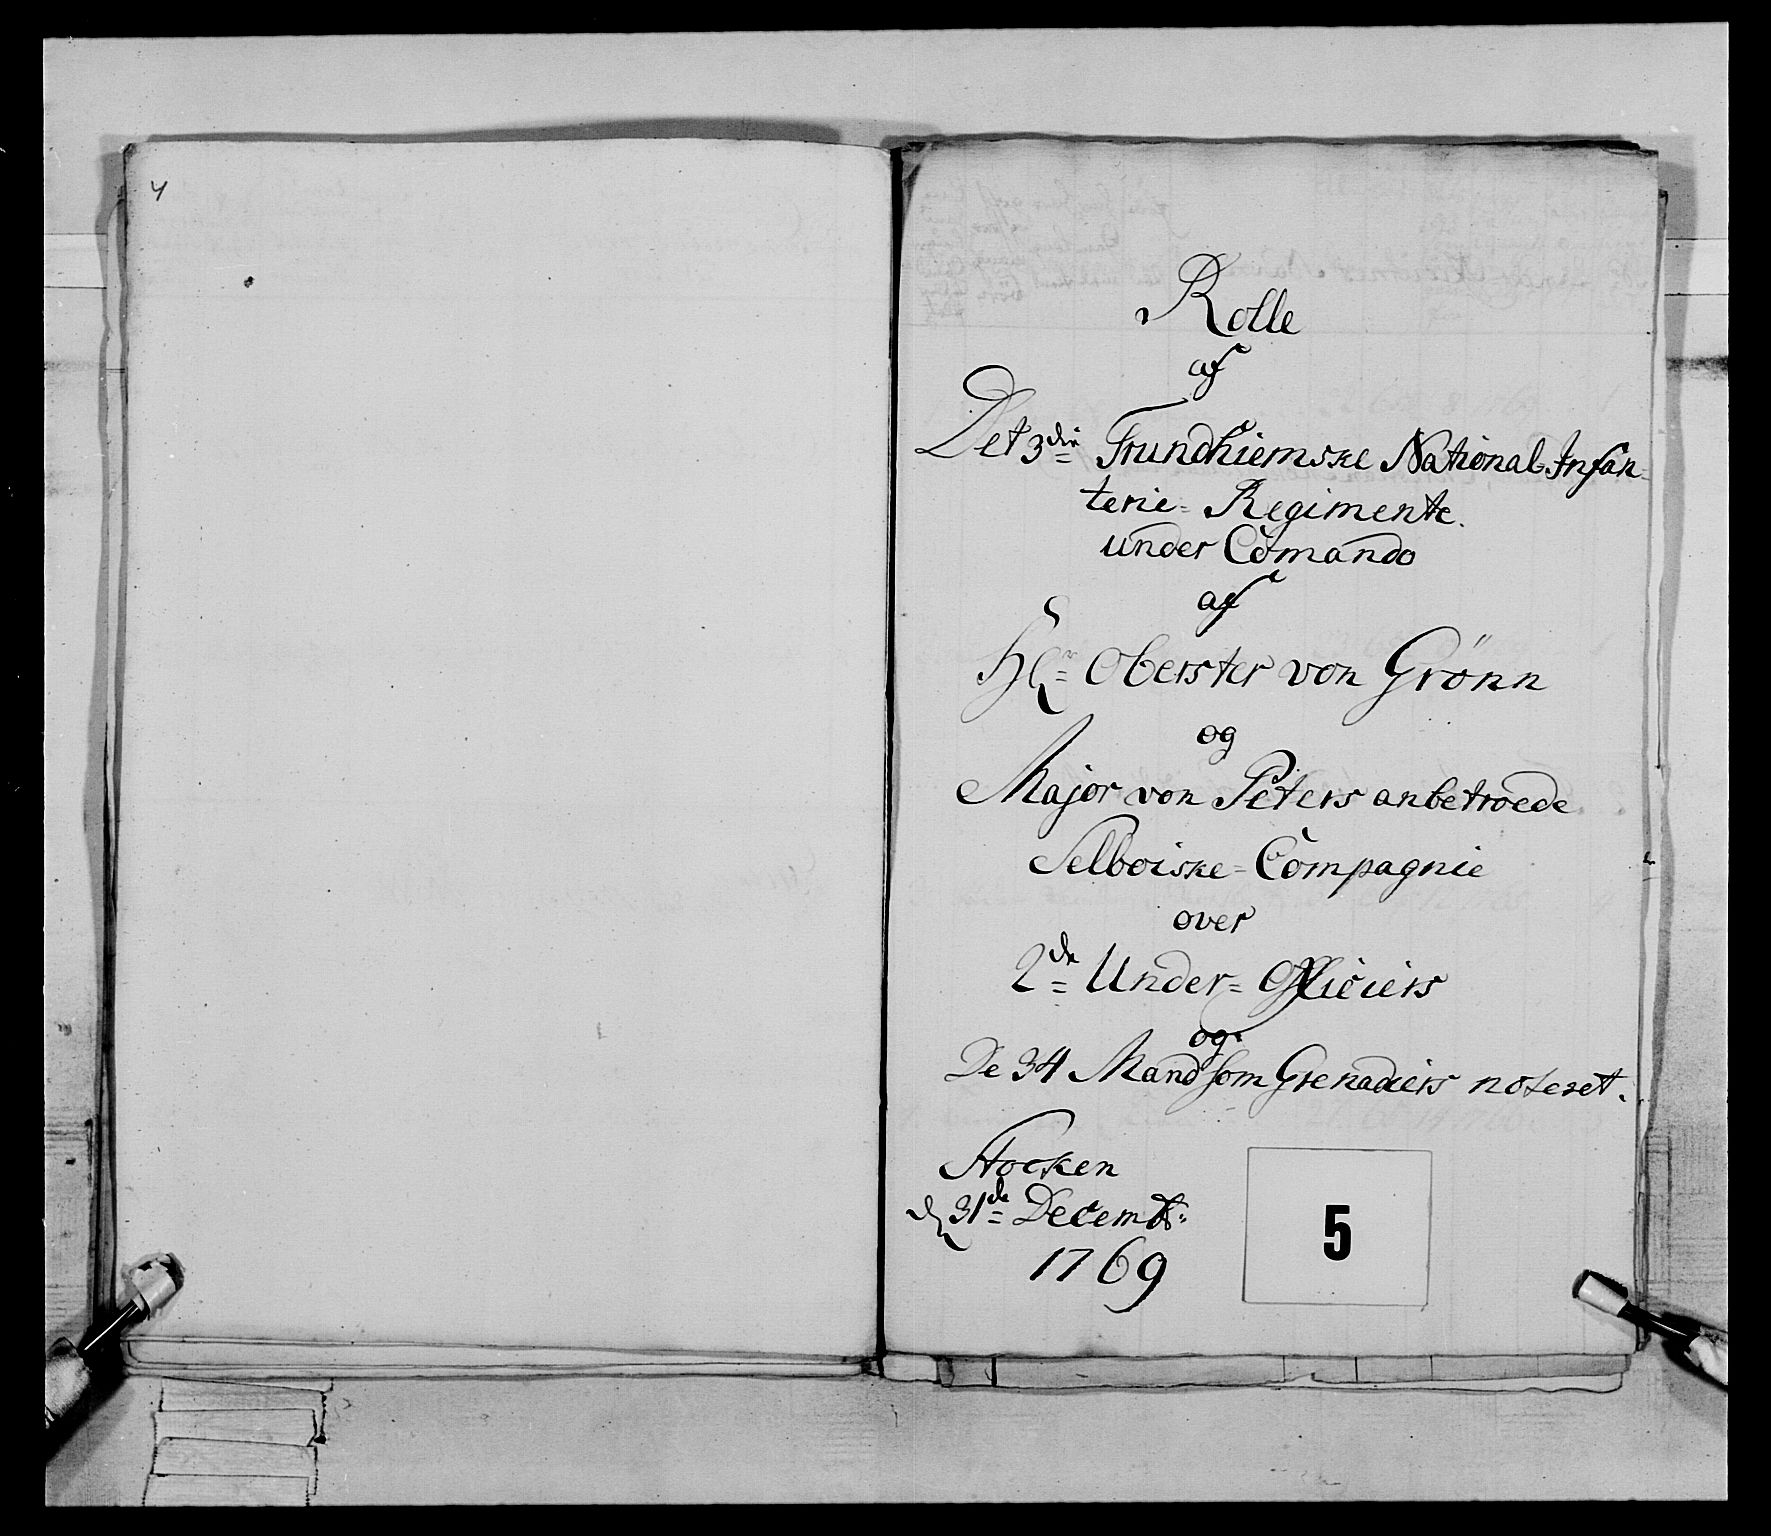 4
Rolle
af
Det 3die Trundhiemske National-Infan-
terie=Regimente.
under Comando
af
Hr Oberster von Grönn
og
Major von Peters anbetroede
Selboiske=Compagnie
over
2de Under=Officiers
og
De 34 Mand som Grenadiers noteret.
Stocken
d 31de Decembr:
1769
5